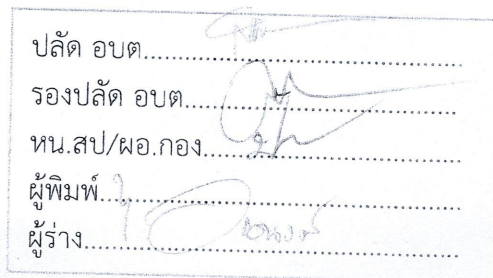 ปลัด อบต....................................................
รองปลัด อบต.............................................
หน.สป/ผอ.กอง..........................................
ผู้พิมพ์............................................................
ผู้ร่าง...............................................................